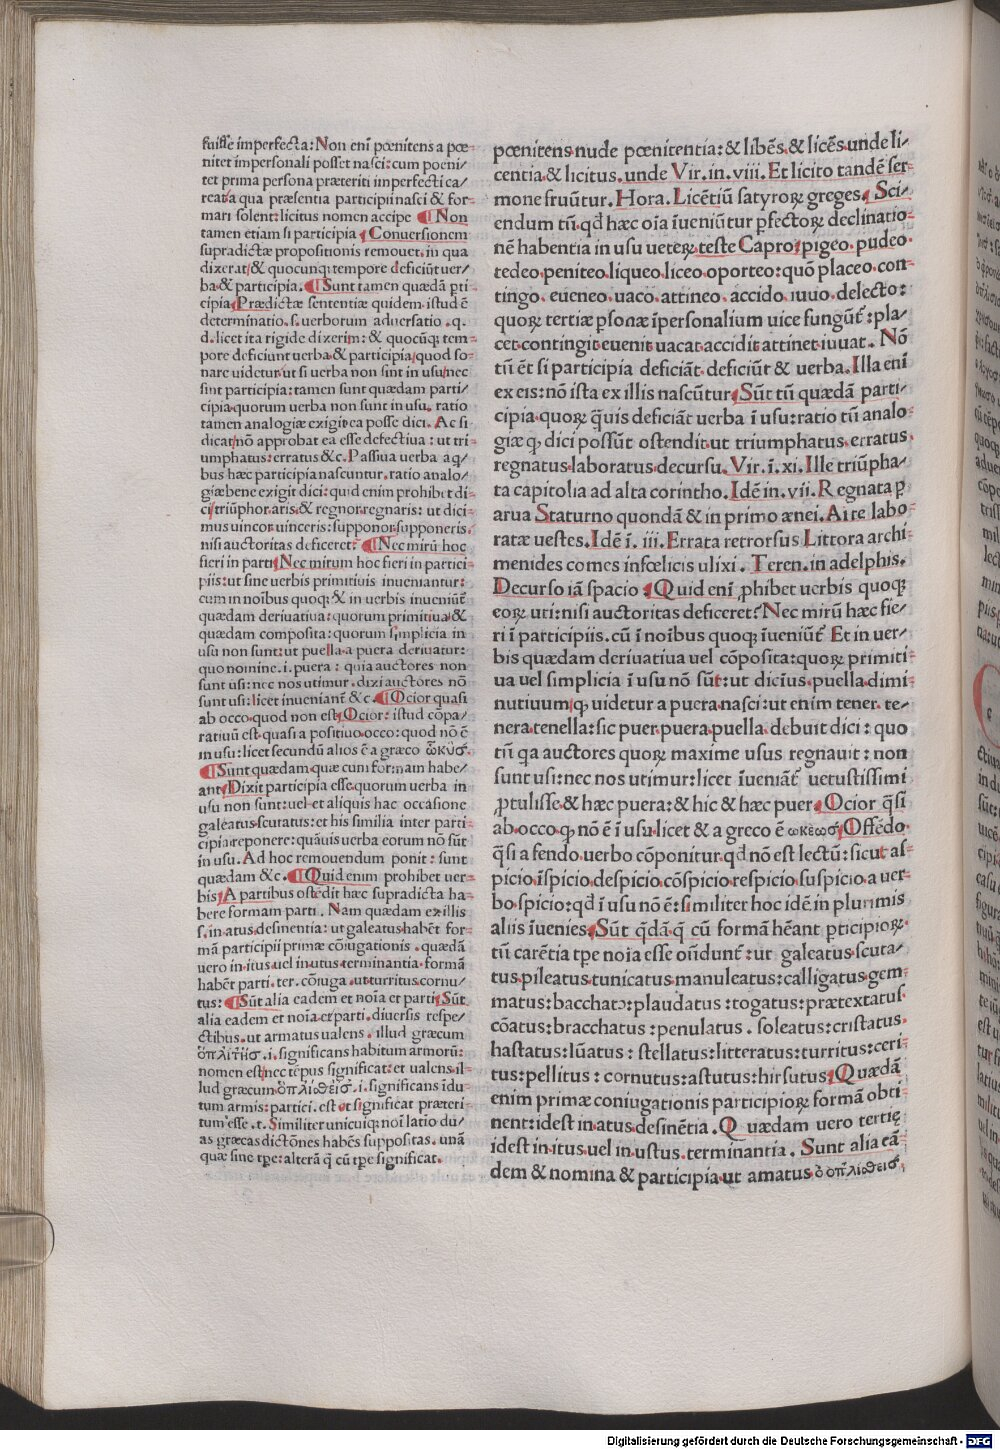 fuisse imperfecta: Non enī pœnitens a pœ-
nitet impersonali posset nasci: cum poeni/
tet prima persona præteriti imperfecti ca/
reat: a qua præsentia participii nasci & for-
mari solent: licitus nomen accipe ¶ Non
tamen etiam si participia. Conuersionem
supradictæ propositionis remouet, in qua
dixerat/& quocunq; tempore deficiūt uer/
ba & participia. ¶ Sunt tamen quædā pti-
cipia. Prædictæ sententiæ quidem, istud ē
determinatio .s. uerborum aduersatio .q.
d. licet ita rigide dixerim: & quocūq; tem-
pore deficiunt uerba & participia, quod so-
nare uidetur ut si uerba non sint in usu/nec
sint participia: tamen sunt quædam parti/
cipia quorum uerba non sunt in usu, ratio
tamen analogiæ exigit ea posse dici. Ac si
dicat/nō approbat ea esse defectiua : ut tri-
umphatus: erratus &c. Passiua uerba a q/
bus hæc participia nascuntur, ratio analo/
giæ bene exigit dici: quid enim prohibet di-
ci/triūphor.aris: & regnor.regnaris: ut dici-
mus uincor.uinceris: supponor.supponeris.
nisi auctoritas deficeret: ¶ Nec mirū hoc
fieri in parti. Nec mirum hoc fieri in partici-
piis: ut sine uerbis primitiuis inueniantur:
cum in noībus quoq; & in uerbis inueniūt̄
quædam deriuatiua: quorum primitiua/&
quædam composita: quorum simplicia in
usu non sunt: ut puella a puera deriuatur:
quo nomine .i. puera : quia auctores non
sunt usi: nec nos utimur. dixi auctores nō
sunt usi: licet inueniant̄ &c. ¶ Ocior quasi
ab occo quod non est. Ocior: istud cōpa/
ratiuū est quasi a positiuo occo: quod nō ē
in usu: licet secundū alios ē a græco ὠκύσ.
¶ Sunt quædam quæ cum formam habe/
ant. Dixit participia esse quorum uerba in
usu non sunt: uel et aliquis hac occasione
galeatus scutatus: et his similia inter parti-
cipia reponere: quāuis uerba eorum nō sūt
in usu. Ad hoc remouendum ponit : sunt
quædam &c. ¶ Quid enim prohibet uer-
bis. A partibus ostēdit hæc supradicta ha-
bere formam parti. Nam quædam ex illis
s. in atus desinentia: ut galeatus habēt for-
mā participii primæ cōiugationis . quædā
uero in itus uel in utus terminantia formā
habēt parti. ter. cōiuga. ut turritus cornu/
tus: ¶ Sūt alia eadem et noīa et parti. Sūt
alia eadem et noīa et parti. diuersis respe/
ctibus. ut armatus ualens . illud græcum
ὁπλίτησ .i. significans habitum armorū:
nomen est/nec tēpus significat: et ualens il-
lud græcum ὁπλισθείσ .i. significans īdu-
tum armis: partici. est et significat præteri-
tum esse .t. Similiter unicuiq; noī latio du/
as græcas dictōnes habēs suppositas. unā
quæ sine tp̄e: alterā q̄ cū tp̄e significat.
pœnitens nude pœnitentia: & libēs & licēs unde li/
centia & licitus, unde Vir. in. viii. Et licito tandē ser-
mone fruūtur. Hora. Licētiū satyroꝝ greges. Sci/
endum tū. qd̄ hæc oīa īueniūtur pfectoꝝ declinatio-
nē habentia in usu ueteꝝ teste Capro/pigeo. pudeo.
tedeo. peniteo. liqueo. liceo. oporteo: quō placeo. con-
tingo. eueneo. uaco. attineo. accido. iuuo. delecto:
quoꝝ tertiæ psonæ īpersonalium uice fungūt̄: pla/
cet. contingit. euenit. uacat. accidit. attinet. iuuat. Nō
tū ēt si participia deficiāt deficiūt & uerba. Illa enī
ex eis: nō ista ex illis nascūtur. Sūt tū quædā parti/
cipia quoꝝ q̄uis deficiāt uerba ī usu: ratio tū analo-
giæ q; dici possūt ostendit. ut triumphatus. erratus.
regnatus. laboratus. decursu. Vir. ī. xi. Ille triūpha/
ta capitolia ad alta corintho. Idē in. vii. Regnata p
arua Staturno quondā & in primo ænei. Arte labo-
ratæ uestes. Idē ī. iii. Errata retrorsus Littora archi-
menides comes infœlicis ulixi. Teren. in adelphis.
Decurso iā spacio. Quid enī phibet uerbis quoq;
eoꝝ uti: nisi auctoritas deficeret? Nec mirū hæc fie/
ri ī participiis. cū ī noībus quoq; īueniūt̄. Et in uer/
bis quædam deriuatiua uel cōposita: quoꝝ primiti-
ua uel simplicia ī usu nō sūt: ut dicīus puella dimi-
nutiuum/q; uidetur a puera nasci: ut enim tener. te-
nera. tenella: sic puer. puera. puella. debuit dici : quo
tū qa auctores quoꝝ maxime usus regnauit : non
sunt usi: nec nos utimur: licet īueniāt̄ uetustissimi
ptulisse & hæc puera: & hic & hæc puer. Ocior q̄si
ab occo q; nō ē ī usu licet & a greco ē ωκεωσ. Offēdo
q̄si a fendo uerbo cōponitur. qd̄ nō est lectū: sicut as-
picio. īspicio. despicio. cōspicio. respicio. suspicio. a uer-
bo spicio: qd̄ ī usu nō ē: similiter hoc idē in plurimis
aliis īuenies. Sūt q̄dā q̄ cū formā hēant pticipioꝝ.
tū carētia tp̄e noīa esse oñdunt̄ : ut galeatus. scuta/
tus. pileatus. tunicatus. manuleatus: calligatus. gem-
matus: bacchatꝰ: plaudatus : togatus: prætextatus.
cōatus: bracchatus : penulatus . soleatus: cristatus.
hastatus: lūatus : stellatus: litteratus: turritus: ceri-
tus: pellitus : cornutus: astutus: hirsutus. Quædā
enim primæ coniugationis participioꝝ formā obti-
nent: idest in atus desinētia. Quædam uero tertię
idest in itus uel in ustus terminantia . Sunt alia eā-
dem & nomina & participia ut amatus ὁ οπλισθεισ.
Digitalisierung gefördert durch die Deutsche Forschungsgemeinschaft - DFG